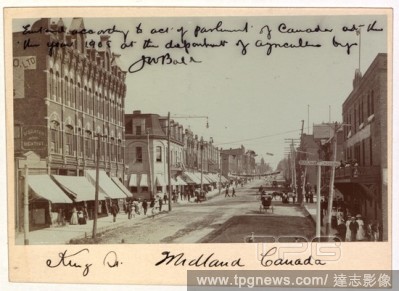 Entered accordg to act of parliment of Canada in the
the year 1905 at the department of agriculture by
JW Bald
King St.
Midland Canada
TPG
www.tpgnews.com/達志影像